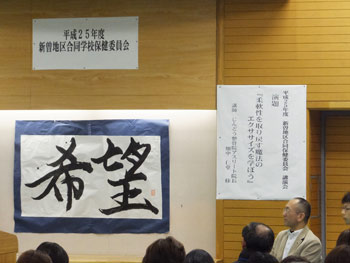 平成25年度
新曽地区合同学校保健委員会
希望
平成25年度 新曽地区合同保健委員会 講演会
演題
『柔軟性を取り戻す魔法の
エクササイズを学ぼう』
講師